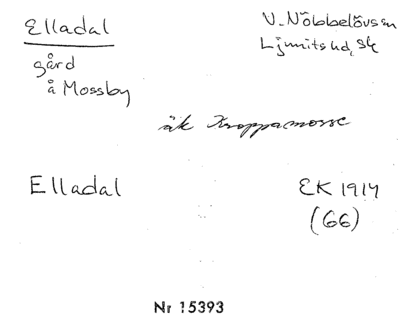 Elladal
gård
å Mossby
V. Nöbbelövs sn
Ljunits hd, Sk
äk Kroppamosse
Elladal
EK 1914
(66)
Nr 15393